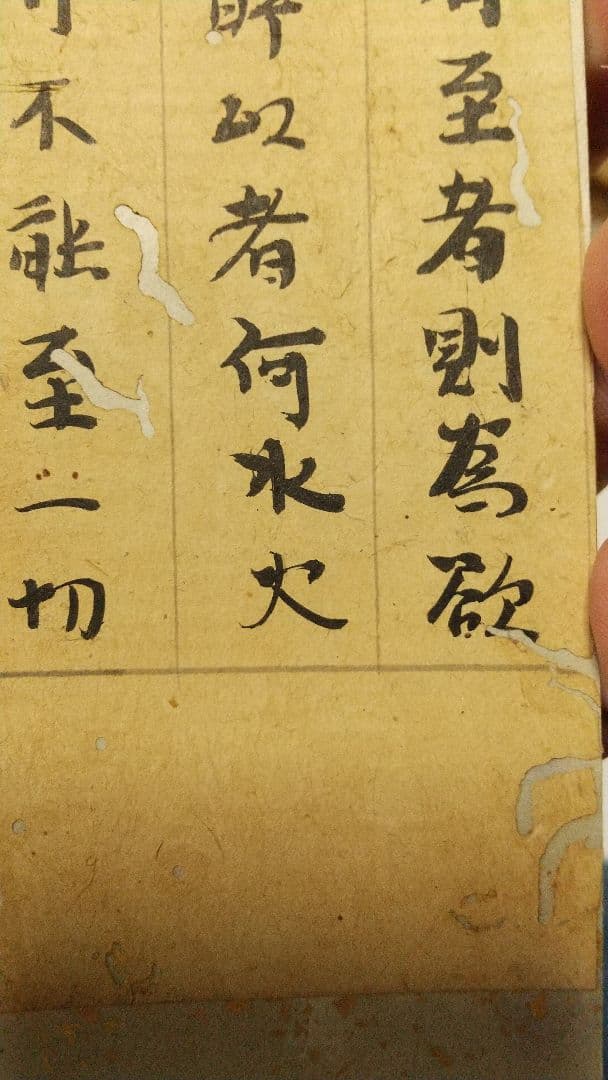 至者則為欲
所以者何水火
不能至一切